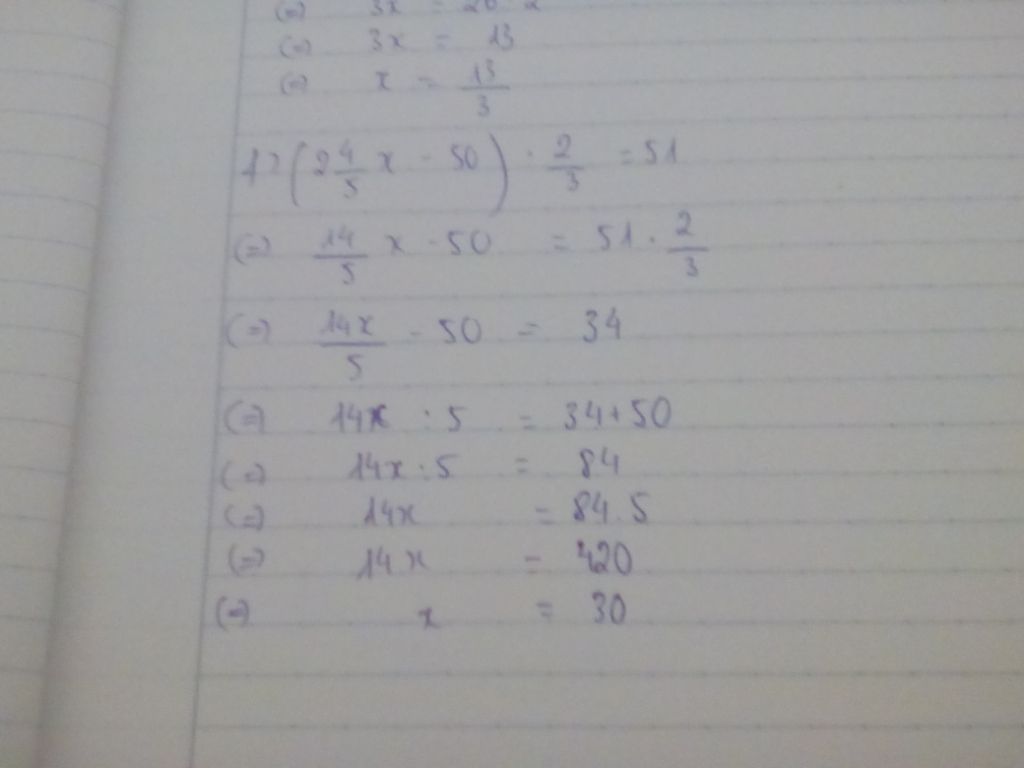 (=) 3x = 26 : 2
(=) 3x = 13
(=) x = 13/3
1> (2 4/5 x - 50) . 2/3 = 51
(=) 14/5 x - 50 = 51 . 2/3
(=) 14x/5 - 50 = 34
(=) 14x : 5 = 34 + 50
(=) 14x : 5 = 84
(=) 14x = 84 . 5
(=) 14x = 420
(=) x = 30